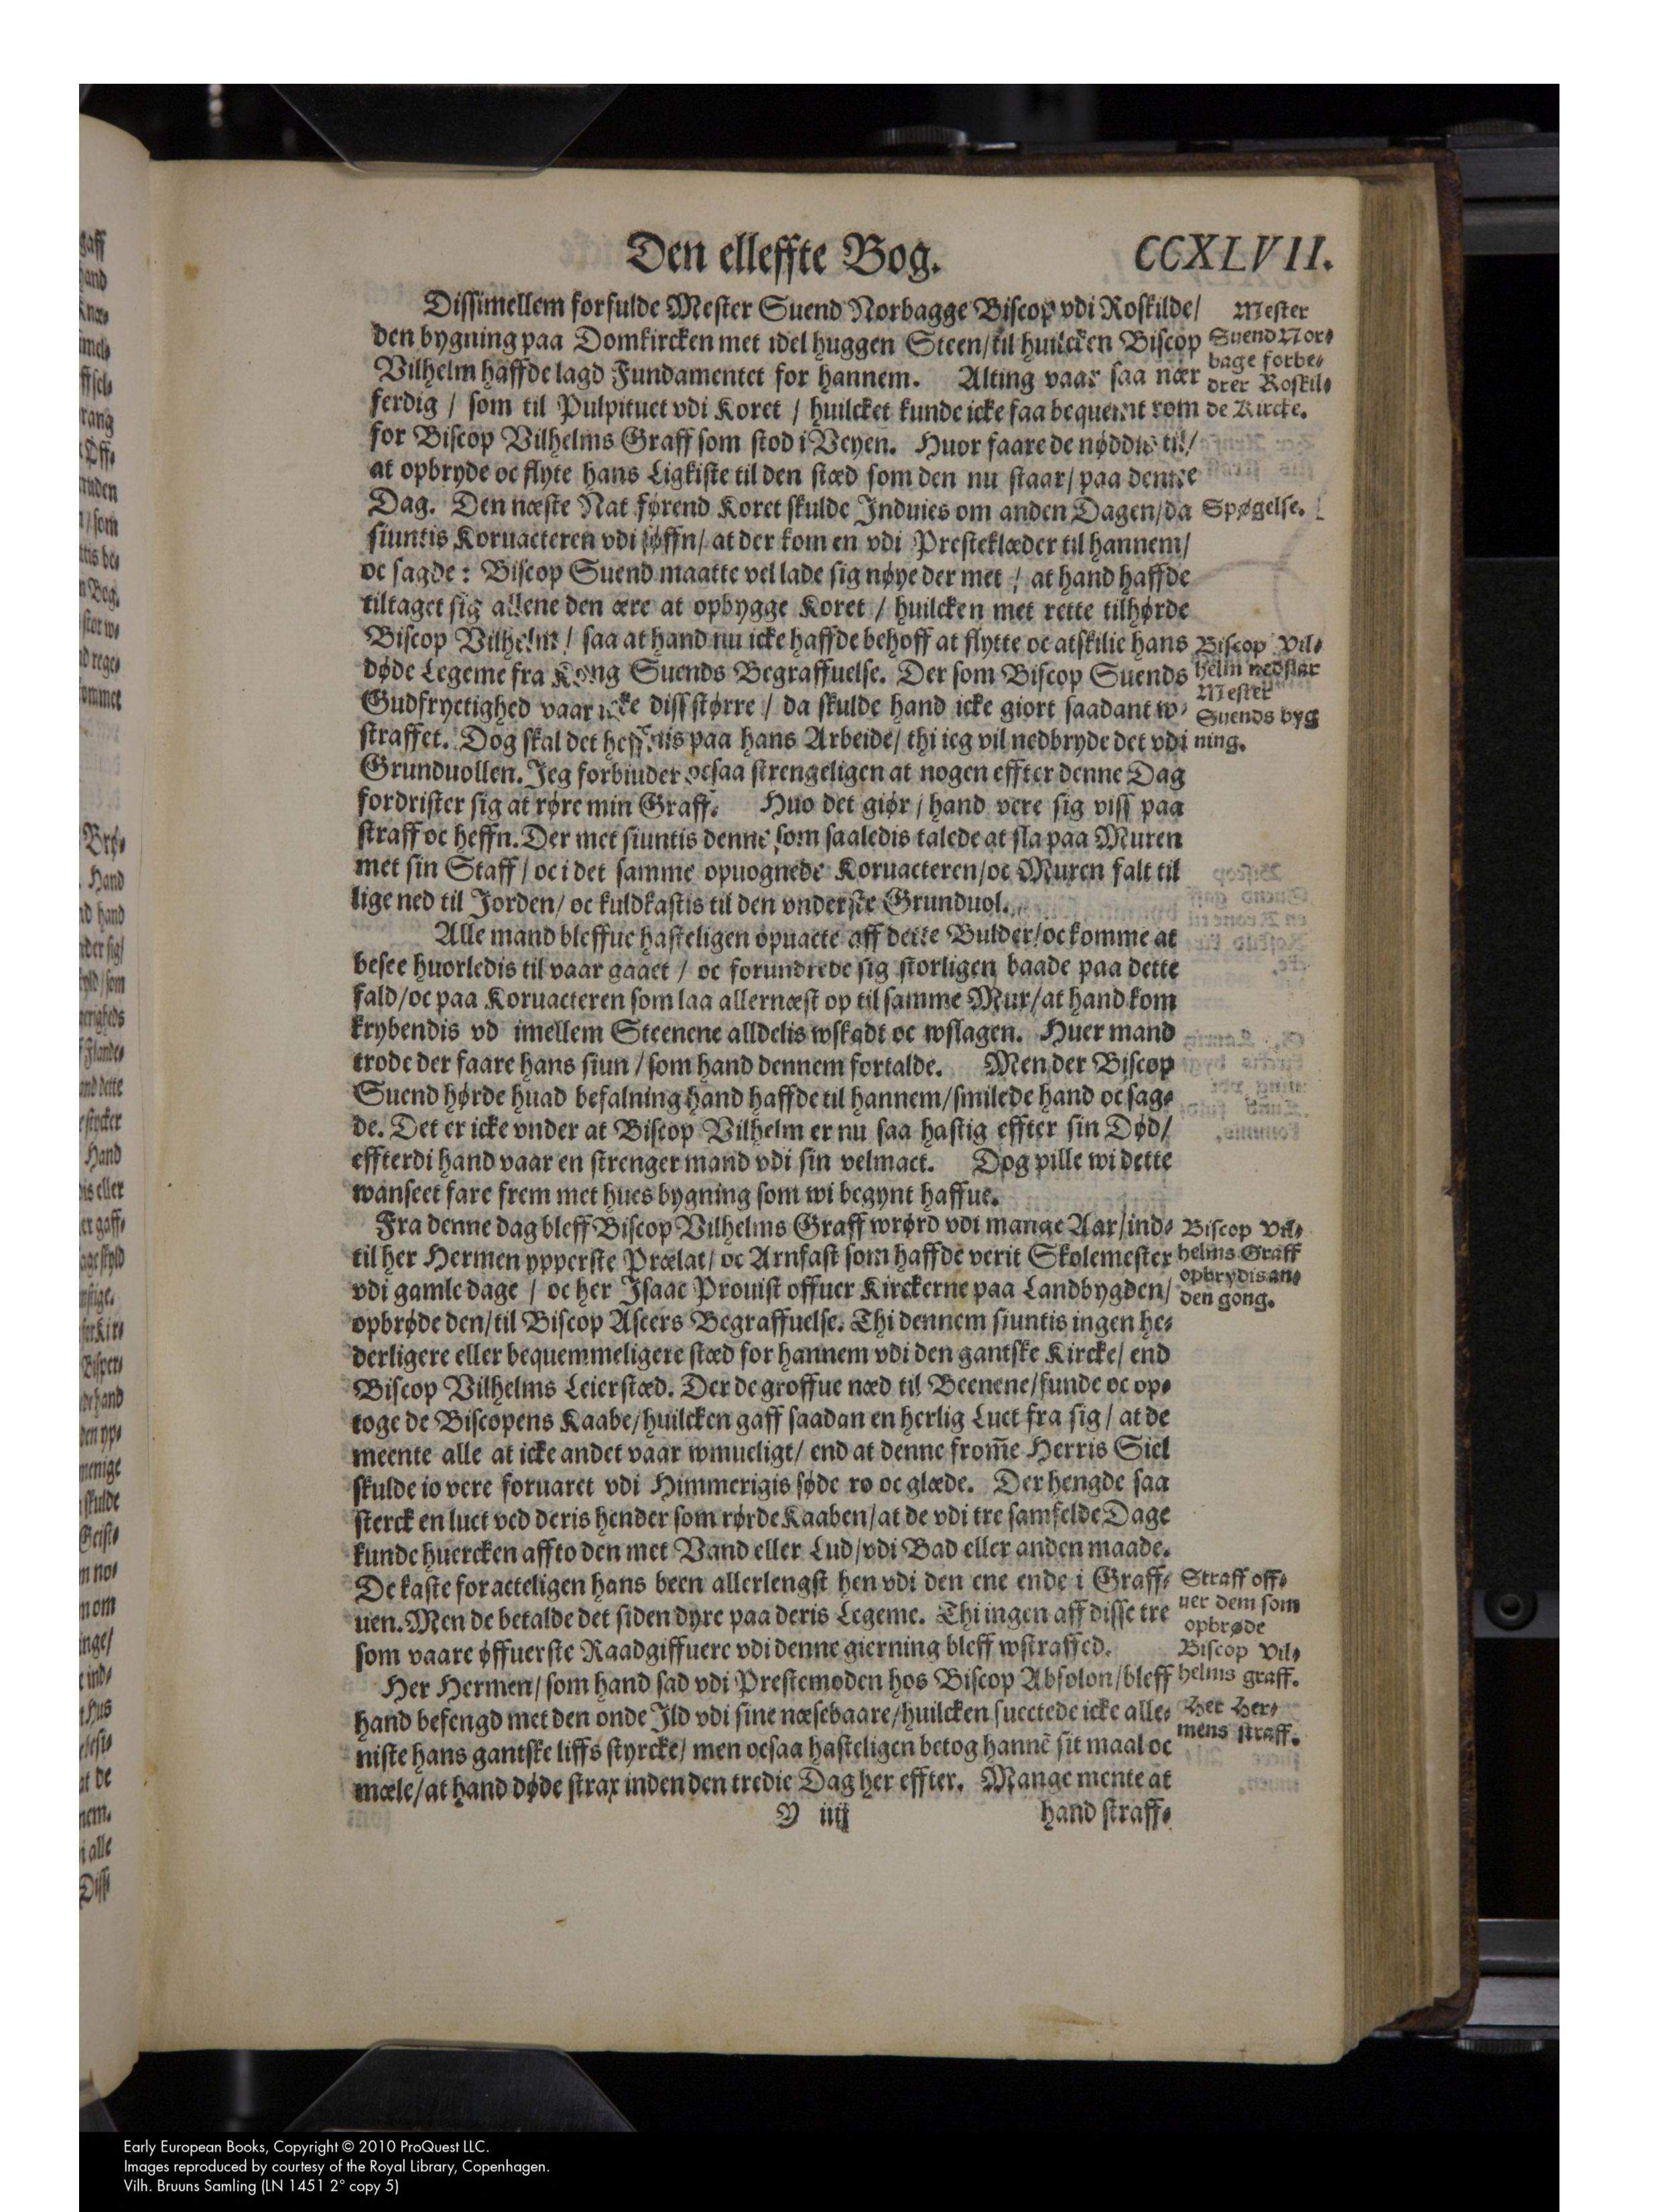 Den elleffte Bog.
CCXLVII.
Dissimellem forfulde Mester Suend Norbagge Biscop vdi Roskilde/
den bygning paa Domkircken met idel huggen Steen/til huilcken Biscop
Vilhelm haffde lagd Fundamentet for hannem. Alting vaar saa nær
ferdig / som til Pulpituet vdi Koret / huilcket kunde icke faa bequemt rom
for Biscop Vilhelms Graff som stod i Veyen. Huor faare de nøddis til/
at opbryde oc flyte hans Ligkiste til den stæd som den nu staar/ paa denne
Dag. Den næste Nat førend Koret skulde Induies om anden Dagen/da
siuntis Koruacteren vdi søffn/ at der kom en vdi Presteklæder til hannem/
oc sagde : Biscop Suend maatte vel lade sig nøye der met / at hand haffde
tiltaget sig allene den ære at opbygge Koret / huilcken met rette tilhørde
Biscop Vilhelm / saa at hand nu icke haffde behoff at flytte oc atskilie hans
døde Legeme fra Kong Suends Begraffuelse. Der som Biscop Suends
Gudfryctighed vaar icke diss større / da skulde hand icke giort saadant w-
straffet. Dog skal det heffnis paa hans Arbeide/ thi ieg vil nedbryde det vdi
Grunduollen. Jeg forbiuder ocsaa strengeligen at nogen effter denne Dag
fordrister sig at røre min Graff. Huo det giør / hand vere sig viss paa
straff oc heffn. Der met siuntis denne som saaledis talede at sla paa Muren
met sin Staff / oc i det samme opuognede Koruacteren/oc Muren falt til
lige ned til Jorden/ oc kuldkastis til den vnderste Grunduol.
Alle mand bleffue hasteligen opuacte aff dette Bulder/oc komme at
besee huorledis til vaar gaaet / oc forundrede sig storligen baade paa dette
fald/oc paa Koruacteren som laa allernæst op til samme Mur/at hand kom
krybendis vd imellem Steenene alldelis wskadt oc wslagen. Huer mand
trode der faare hans siun / som hand dennem fortalde. Men der Biscop
Suend hørde huad befalning hand haffde til hannem/smilede hand oc sag-
de. Det er icke vnder at Biscop Vilhelm er nu saa hastig effter sin Død/
effterdi hand vaar en strenger mand vdi sin velmact. Dog pille wi dette
wanseet fare frem met hues bygning som wi begynt haffue.
Fra denne dag bleff Biscop Vilhelms Graff wrørd vdi mange Aar/ind-
til her Hermen ypperste Prælat/ oc Arnfast som haffde verit Skolemester
vdi gamle dage / oc her Isaac Prouist offuer Kirckerne paa Landbygden/
opbrøde den/til Biscop Ascers Begraffuelse. Thi dennem siuntis ingen he-
derligere eller bequemmeligere stæd for hannem vdi den gantske Kircke/ end
Biscop Vilhelms Leierstæd. Der de groffue næd til Beenene/funde oc op-
toge de Biscopens Kaabe/huilcken gaff saadan en herlig Luct fra sig / at de
meente alle at icke andet vaar wmueligt/ end at denne from̃e Herris Siel
skulde io vere foruaret vdi Himmerigis søde ro oc glæde. Der hengde saa
sterck en luct ved deris hender som rørde Kaaben/at de vdi tre samfelde Dage
kunde huercken affto den met Vand eller Lud/vdi Bad eller anden maade.
De kaste foracteligen hans been allerlengst hen vdi den ene ende i Graff-
uen. Men de betalde det siden dyre paa deris Legeme. Thi ingen aff disse tre
som vaare øffuerste Raadgiffuere vdi denne gierning bleff wstraffed.
Her Hermen/ som hand sad vdi Prestemoden hos Biscop Absolon/bleff
hand befengd met den onde Ild vdi sine næsebaare/huilcken suectede icke alle-
niste hans gantske liffs styrcke/ men ocsaa hasteligen betog hannẽ sit maal oc
mæle/at hand døde strax inden den tredie Dag her effter. Mange mente at
Y iiij
hand straff-
Mester
Suend Nor-
bage forbe-
drer Roskil-
de Kircke.
Spøgelse.
Biscop Vil-
helm nedslar
Mester
Suends byg
ning.
Biscop Vil-
helms Graff
opbrydis an-
den gong.
Straff off-
uer dem som
opbrøde
Biscop Vil-
helms graff.
Her Her-
mens straff.
Early European Books, Copyright © 2010 ProQuest LLC.
Images reproduced by courtesy of the Royal Library, Copenhagen.
Vilh. Bruuns Samling (LN 1451 2° copy 5)